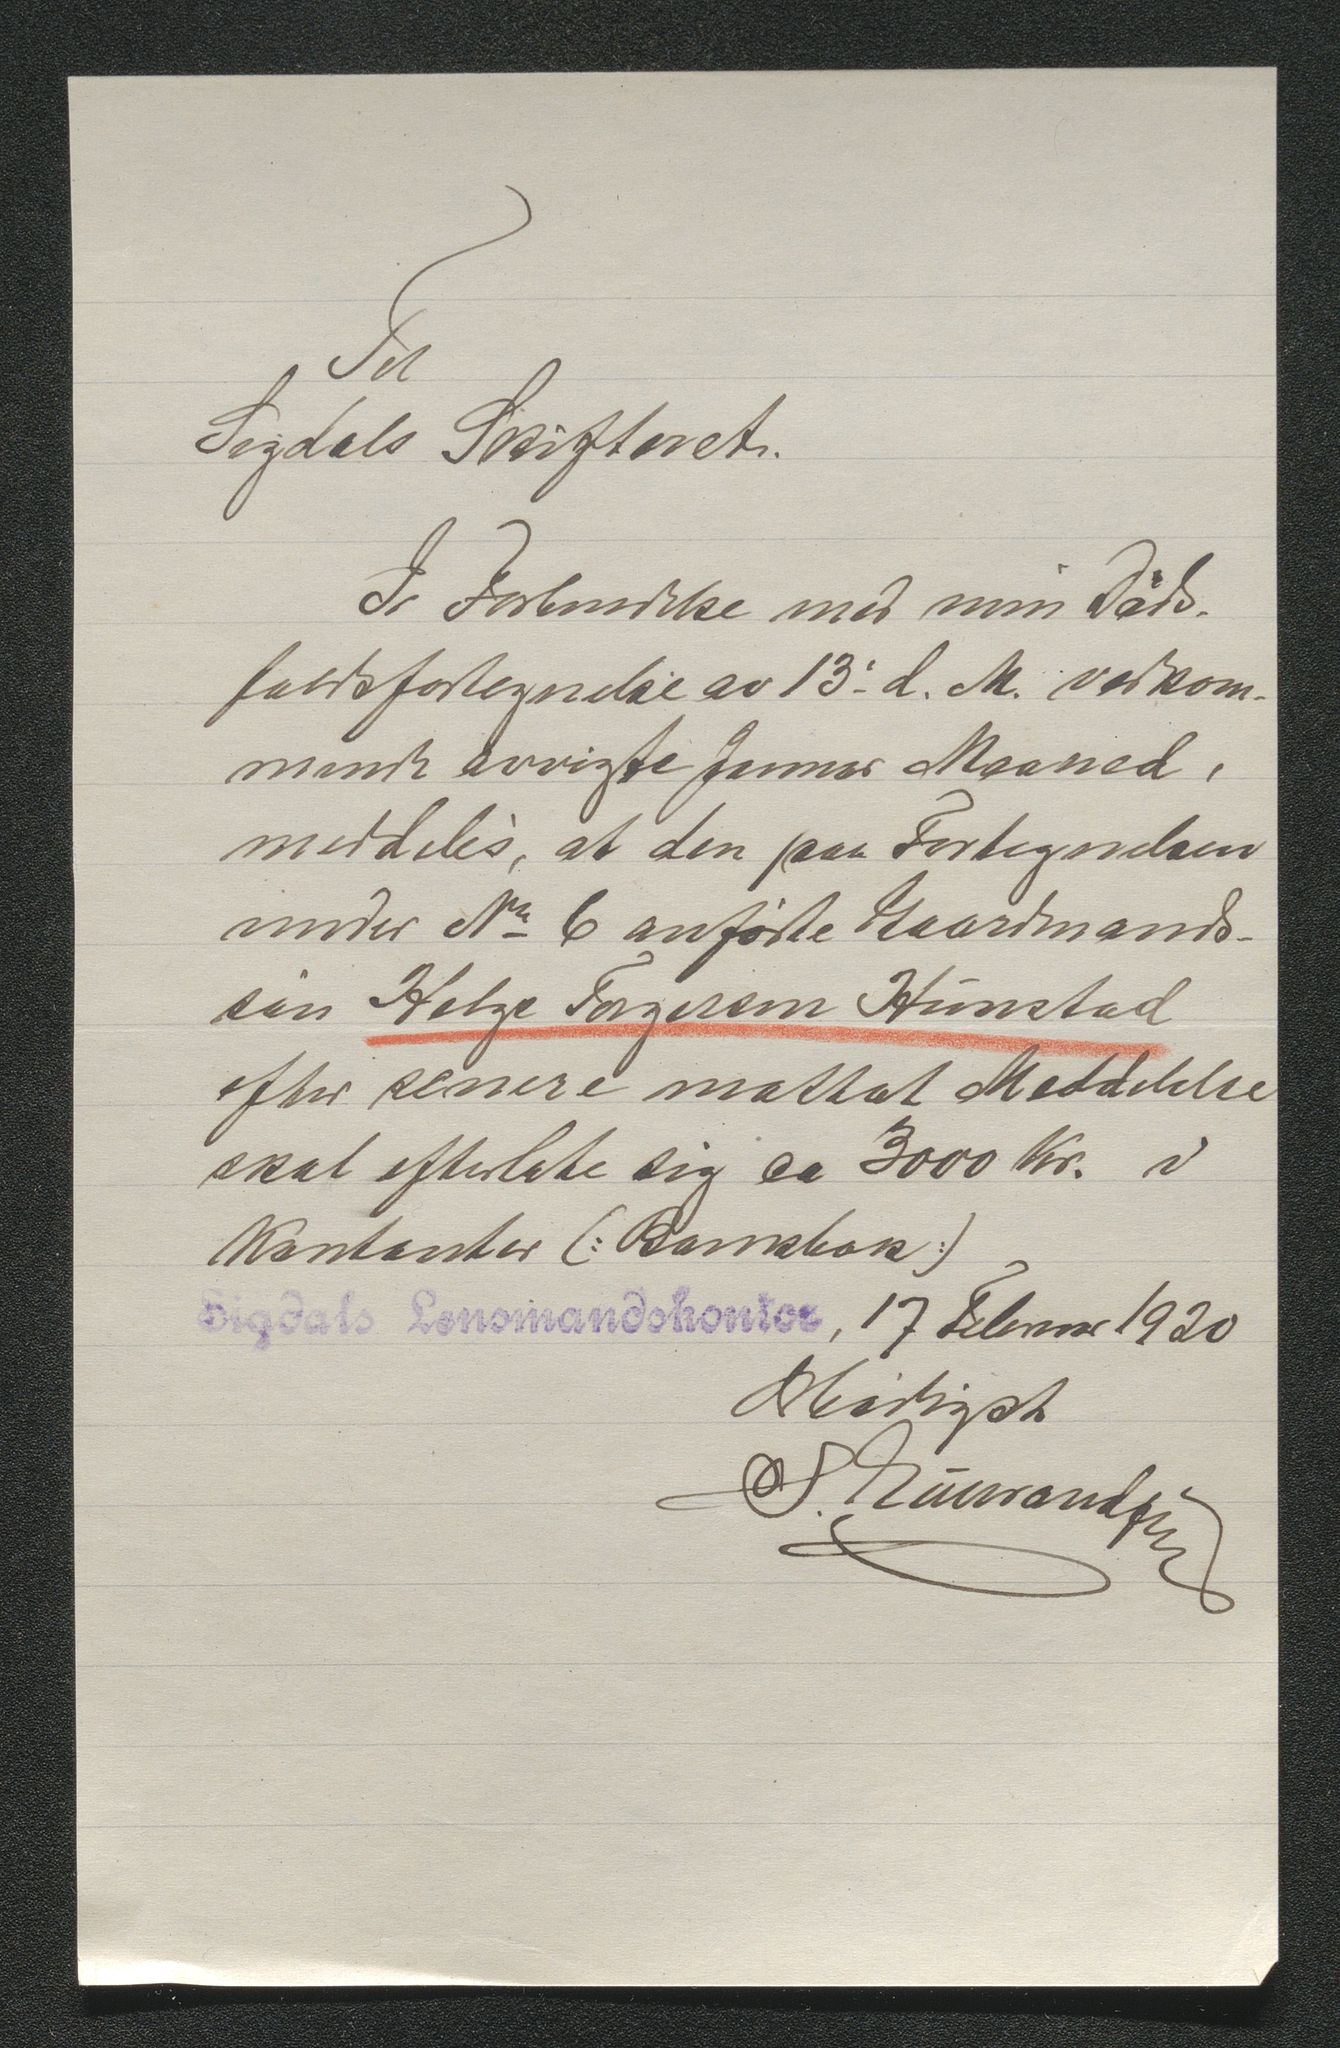 Til
Sigdals Skifteret.
I Forbindelse med min Døds-
faldsfortegnelse av 13. d. M. vedkom-
mende avvigte Januar Maaned,
meddeles, at den paa Fortegnelsen
under No 6 anførte Gaardmands-
søn Helge Torgersen Hunstad
efter senere mottat Meddelelse
skal efterlate sig ca 3000 Kr. i
Kontanter (: Bankbok :)
Sigdals Lensmandskontor, 17 Februar 1920
Ærbødigst
S.